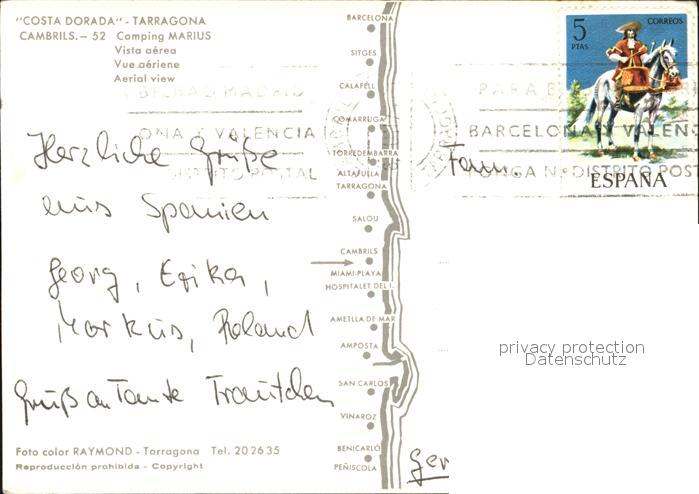 "COSTA DORADA" - TARRAGONA
CAMBRILS. - 52 Camping MARIUS
Vista aérea
Vue aériene
Aerial view
BILBAO MADRID
ONA Y VALENCIA
DISTRITO POSTAL
Herzliche Grüße
aus Spanien
Georg, Erika,
Markus, Roland
Gruß an Tante Trautchen
Foto color RAYMOND - Tarragona Tel. 202635
Reproducción prohibida - Copyright
BARCELONA
SITGES
CALAFELL
COMARRUGA
TORREDEMBARRA
ALTAFULLA
TARRAGONA
SALOU
CAMBRILS
MIAMI-PLAYA
HOSPITALET DEL I.
AMETLLA DE MAR
AMPOSTA
SAN CARLOS
VINAROZ
BENICARLÓ
PEÑISCOLA
5
PTAS
CORREOS
ESPAÑA
PARA B
BARCELONA Y VALEN
PONGA Nº DISTRITO POST
Fam.
privacy protection
Datenschutz
Ger